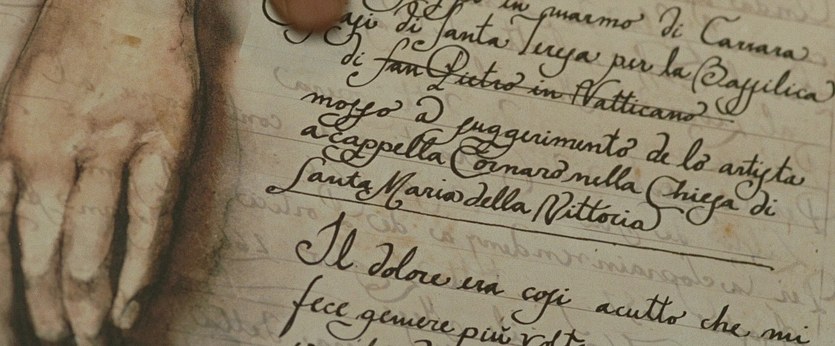 in marmo di Carrara
di Santa Teresa per la Bassilica
di San Pietro in Vatticano
mosso a suggerimento de lo artista
a cappella Cornaro nella Chiesa di
Santa Maria della Vittoria
Il dolore era cosi acutto che mi
fece gemere più